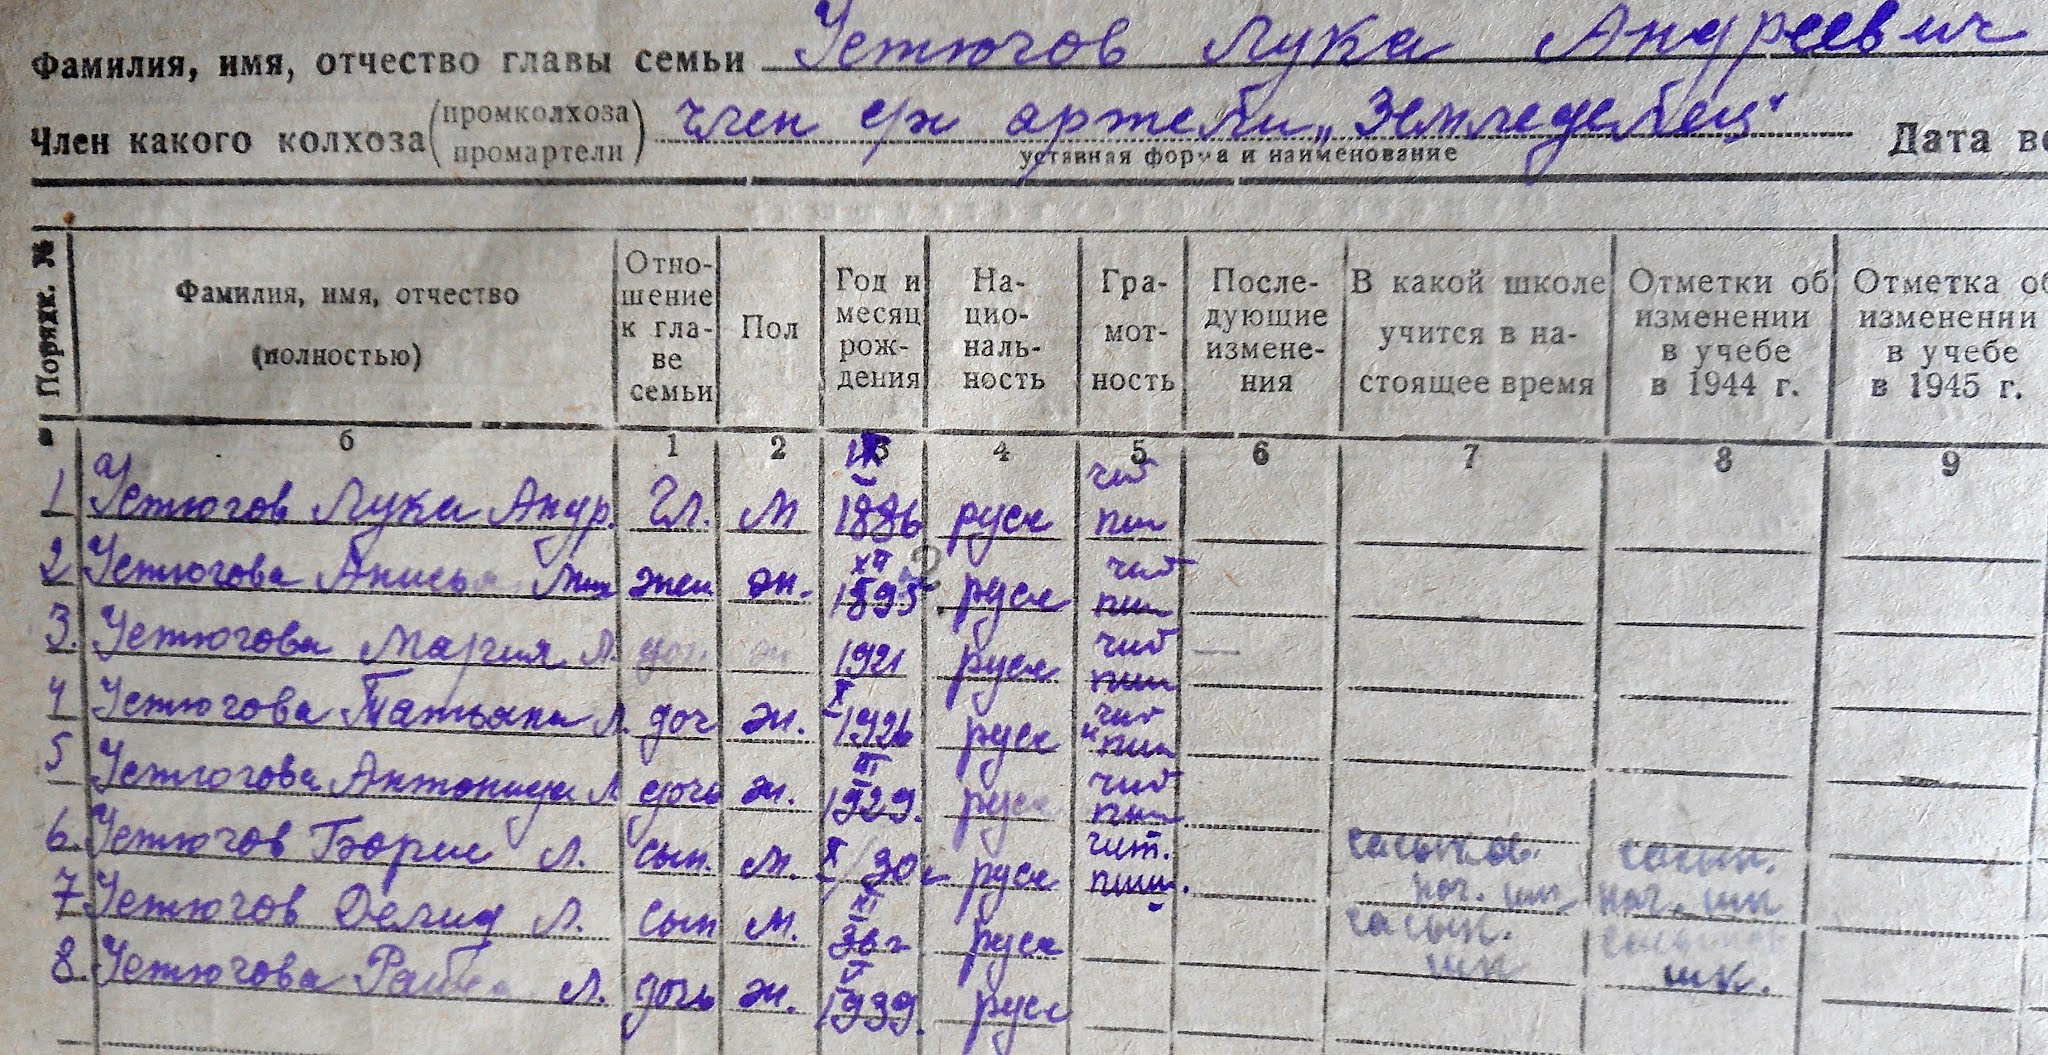 Фамилия, имя, отчество главы семьи Устюгов Лука Андреевич
Член какого колхоза (промколхоза промартели) член с/х артели „Земледелец"
уставная форма и наименование
Дата в
Порядк. №
Фамилия, имя, отчество (полностью)
Отно-шение к гла-ве семьи
Пол
Год и месяц рож-дения
На-цио-наль-ность
Гра-мот-ность
После-дующие измене-ния
В какой школе учится в на-стоящее время
Отметки об изменении в учебе в 1944 г.
Отметка об изменении в учебе в 1945 г.
б 1 2 3 4 5 6 7 8 9
1 Устюгов Лука Андр. Гл. М 1886 руск чит пис
2 Устюгова Анисья Мих жен ж. XII 1895 руск чит пис
3. Устюгова Мария Л. доч ж 1921 руск чит пис
4 Устюгова Татьяна Л. доч ж. X 1926 руск чит и пис
5 Устюгова Антонида Л дочь ж. III 1929. руск чит пис
6. Устюгов Борис Л. сын. М. X/30 г руск чит. пиш. нач. шк нач. шк
7 Устюгов Л. сын М. XI 36 г руск шк шк.
8. Устюгова Л. дочь ж. V 1939. руск